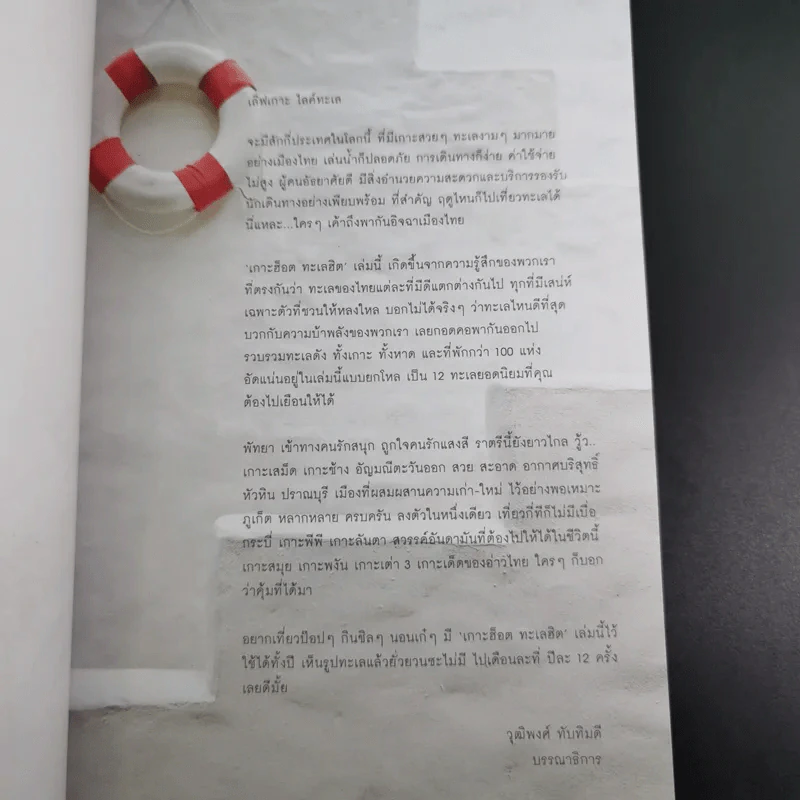 เลิฟเกาะ ไลค์ทะเล
จะมีสักกี่ประเทศในโลกนี้ ที่มีเกาะสวยๆ ทะเลงามๆ มากมาย
อย่างเมืองไทย เล่นน้ำก็ปลอดภัย การเดินทางก็ง่าย ค่าใช้จ่าย
ไม่สูง ผู้คนอัธยาศัยดี มีสิ่งอำนวยความสะดวกและบริการรองรับ
นักเดินทางอย่างเพียบพร้อม ที่สำคัญ ฤดูไหนก็ไปเที่ยวทะเลได้
นี่แหละ...ใครๆ เค้าถึงพากันอิจฉาเมืองไทย
'เกาะฮ็อต ทะเลฮิต' เล่มนี้ เกิดขึ้นจากความรู้สึกของพวกเรา
ที่ตรงกันว่า ทะเลของไทยแต่ละที่มีดีแตกต่างกันไป ทุกที่มีเสน่ห์
เฉพาะตัวที่ชวนให้หลงใหล บอกไม่ได้จริงๆ ว่าทะเลไหนดีที่สุด
บวกกับความบ้าพลังของพวกเรา เลยกอดคอพากันออกไป
รวบรวมทะเลดัง ทั้งเกาะ ทั้งหาด และที่พักกว่า 100 แห่ง
อัดแน่นอยู่ในเล่มนี้แบบยกโหล เป็น 12 ทะเลยอดนิยมที่คุณ
ต้องไปเยือนให้ได้
พัทยา เข้าทางคนรักสนุก ถูกใจคนรักแสงสี ราตรีนี้ยังยาวไกล วู้ว..
เกาะเสม็ด เกาะช้าง อัญมณีตะวันออก สวย สะอาด อากาศบริสุทธิ์
หัวหิน ปราณบุรี เมืองที่ผสมผสานความเก่า-ใหม่ ไว้อย่างพอเหมาะ
ภูเก็ต หลากหลาย ครบครัน ลงตัวในหนึ่งเดียว เที่ยวกี่ทีก็ไม่มีเบื่อ
กระบี่ เกาะพีพี เกาะลันตา สวรรค์อันดามันที่ต้องไปให้ได้ในชีวิตนี้
เกาะสมุย เกาะพงัน เกาะเต่า 3 เกาะเด็ดของอ่าวไทย ใครๆ ก็บอก
ว่าคุ้มที่ได้มา
อยากเที่ยวป๊อปๆ กินชิลๆ นอนเก๋ๆ มี 'เกาะฮ็อต ทะเลฮิต' เล่มนี้ไว้
ใช้ได้ทั้งปี เห็นรูปทะเลแล้วยั่วยวนซะไม่มี ไปเดือนละที่ ปีละ 12 ครั้ง
เลยดีมั้ย
วุฒิพงศ์ ทับทิมดี
บรรณาธิการ